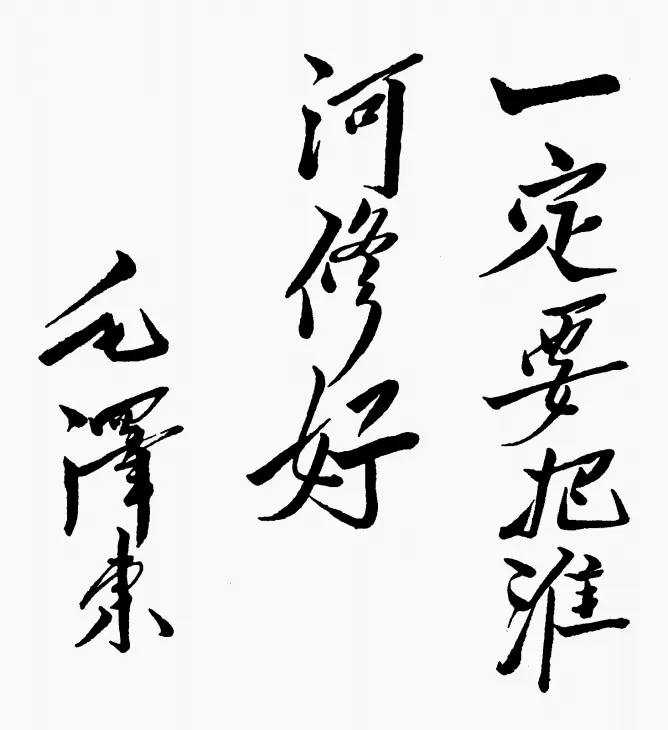 一定要把淮
河修好
毛澤东